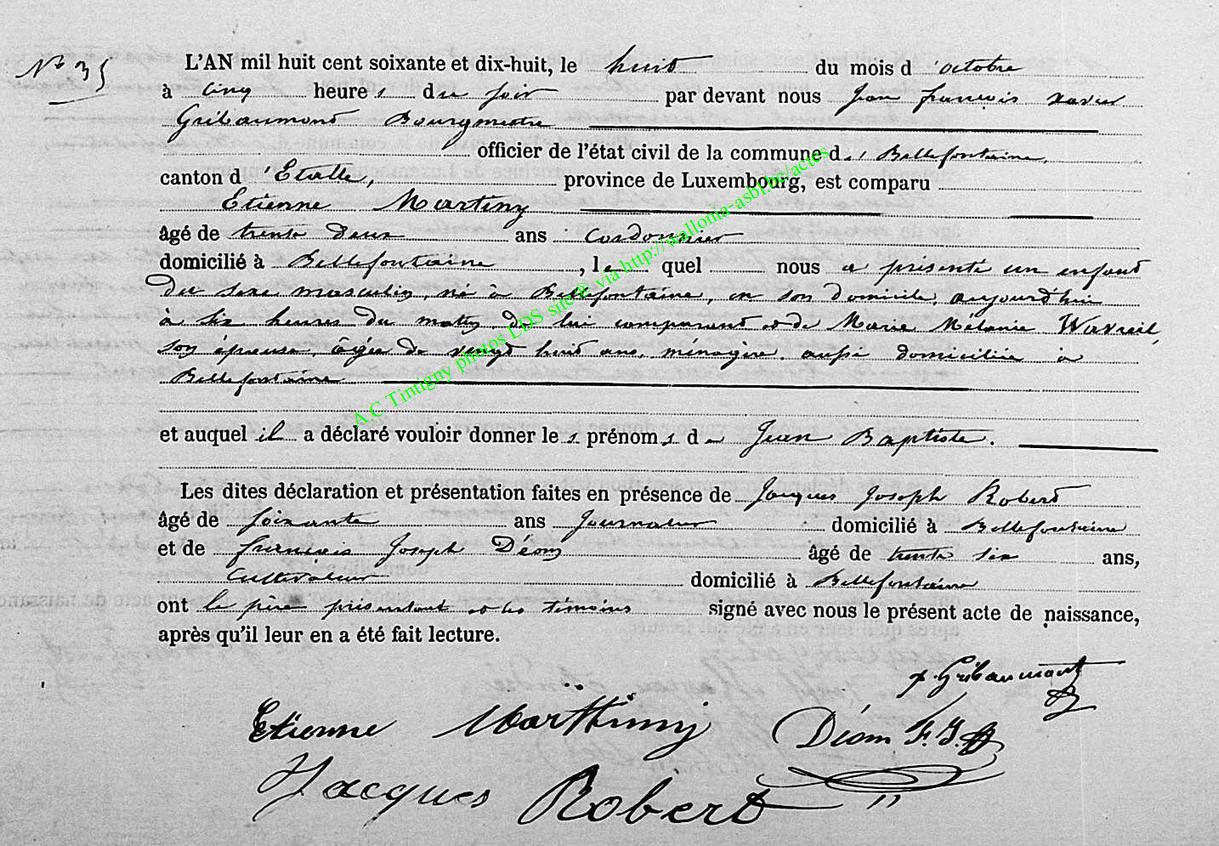 N° 35
L'AN mil huit cent soixante et dix-huit, le huit du mois d'octobre
à cinq heures du soir par devant nous Jean françois xavier
Gribaumont Bourgmestre
officier de l'état civil de la commune de Bellefontaine,
canton d'Etalle, province de Luxembourg, est comparu
Etienne Martiny
âgé de trente deux ans cordonnier
domicilié à Bellefontaine, le quel nous a présenté un enfant
du sexe masculin, né à Bellefontaine, en son domicile, aujourd'hui
à six heures du matin de lui comparant et de Marie Mélanie
son épouse, âgée de vingt huit ans, ménagère, aussi domiciliée à
Bellefontaine
et auquel il a déclaré vouloir donner les prénoms de Jean Baptiste.
Les dites déclaration et présentation faites en présence de Jacques Joseph Robert
âgé de soixante ans Journalier domicilié à Bellefontaine
et de francois Joseph Déom âgé de trente six ans,
Cultivateur domicilié à Bellefontaine
ont le père présentant et les témoins signé avec nous le présent acte de naissance,
après qu'il leur en a été fait lecture.
Gribaumont
Etienne Marthiny Déom F. J.
Jacques Robert
A.C Tintigny photos LDS sur via http://wallonia-asbl.be/actes